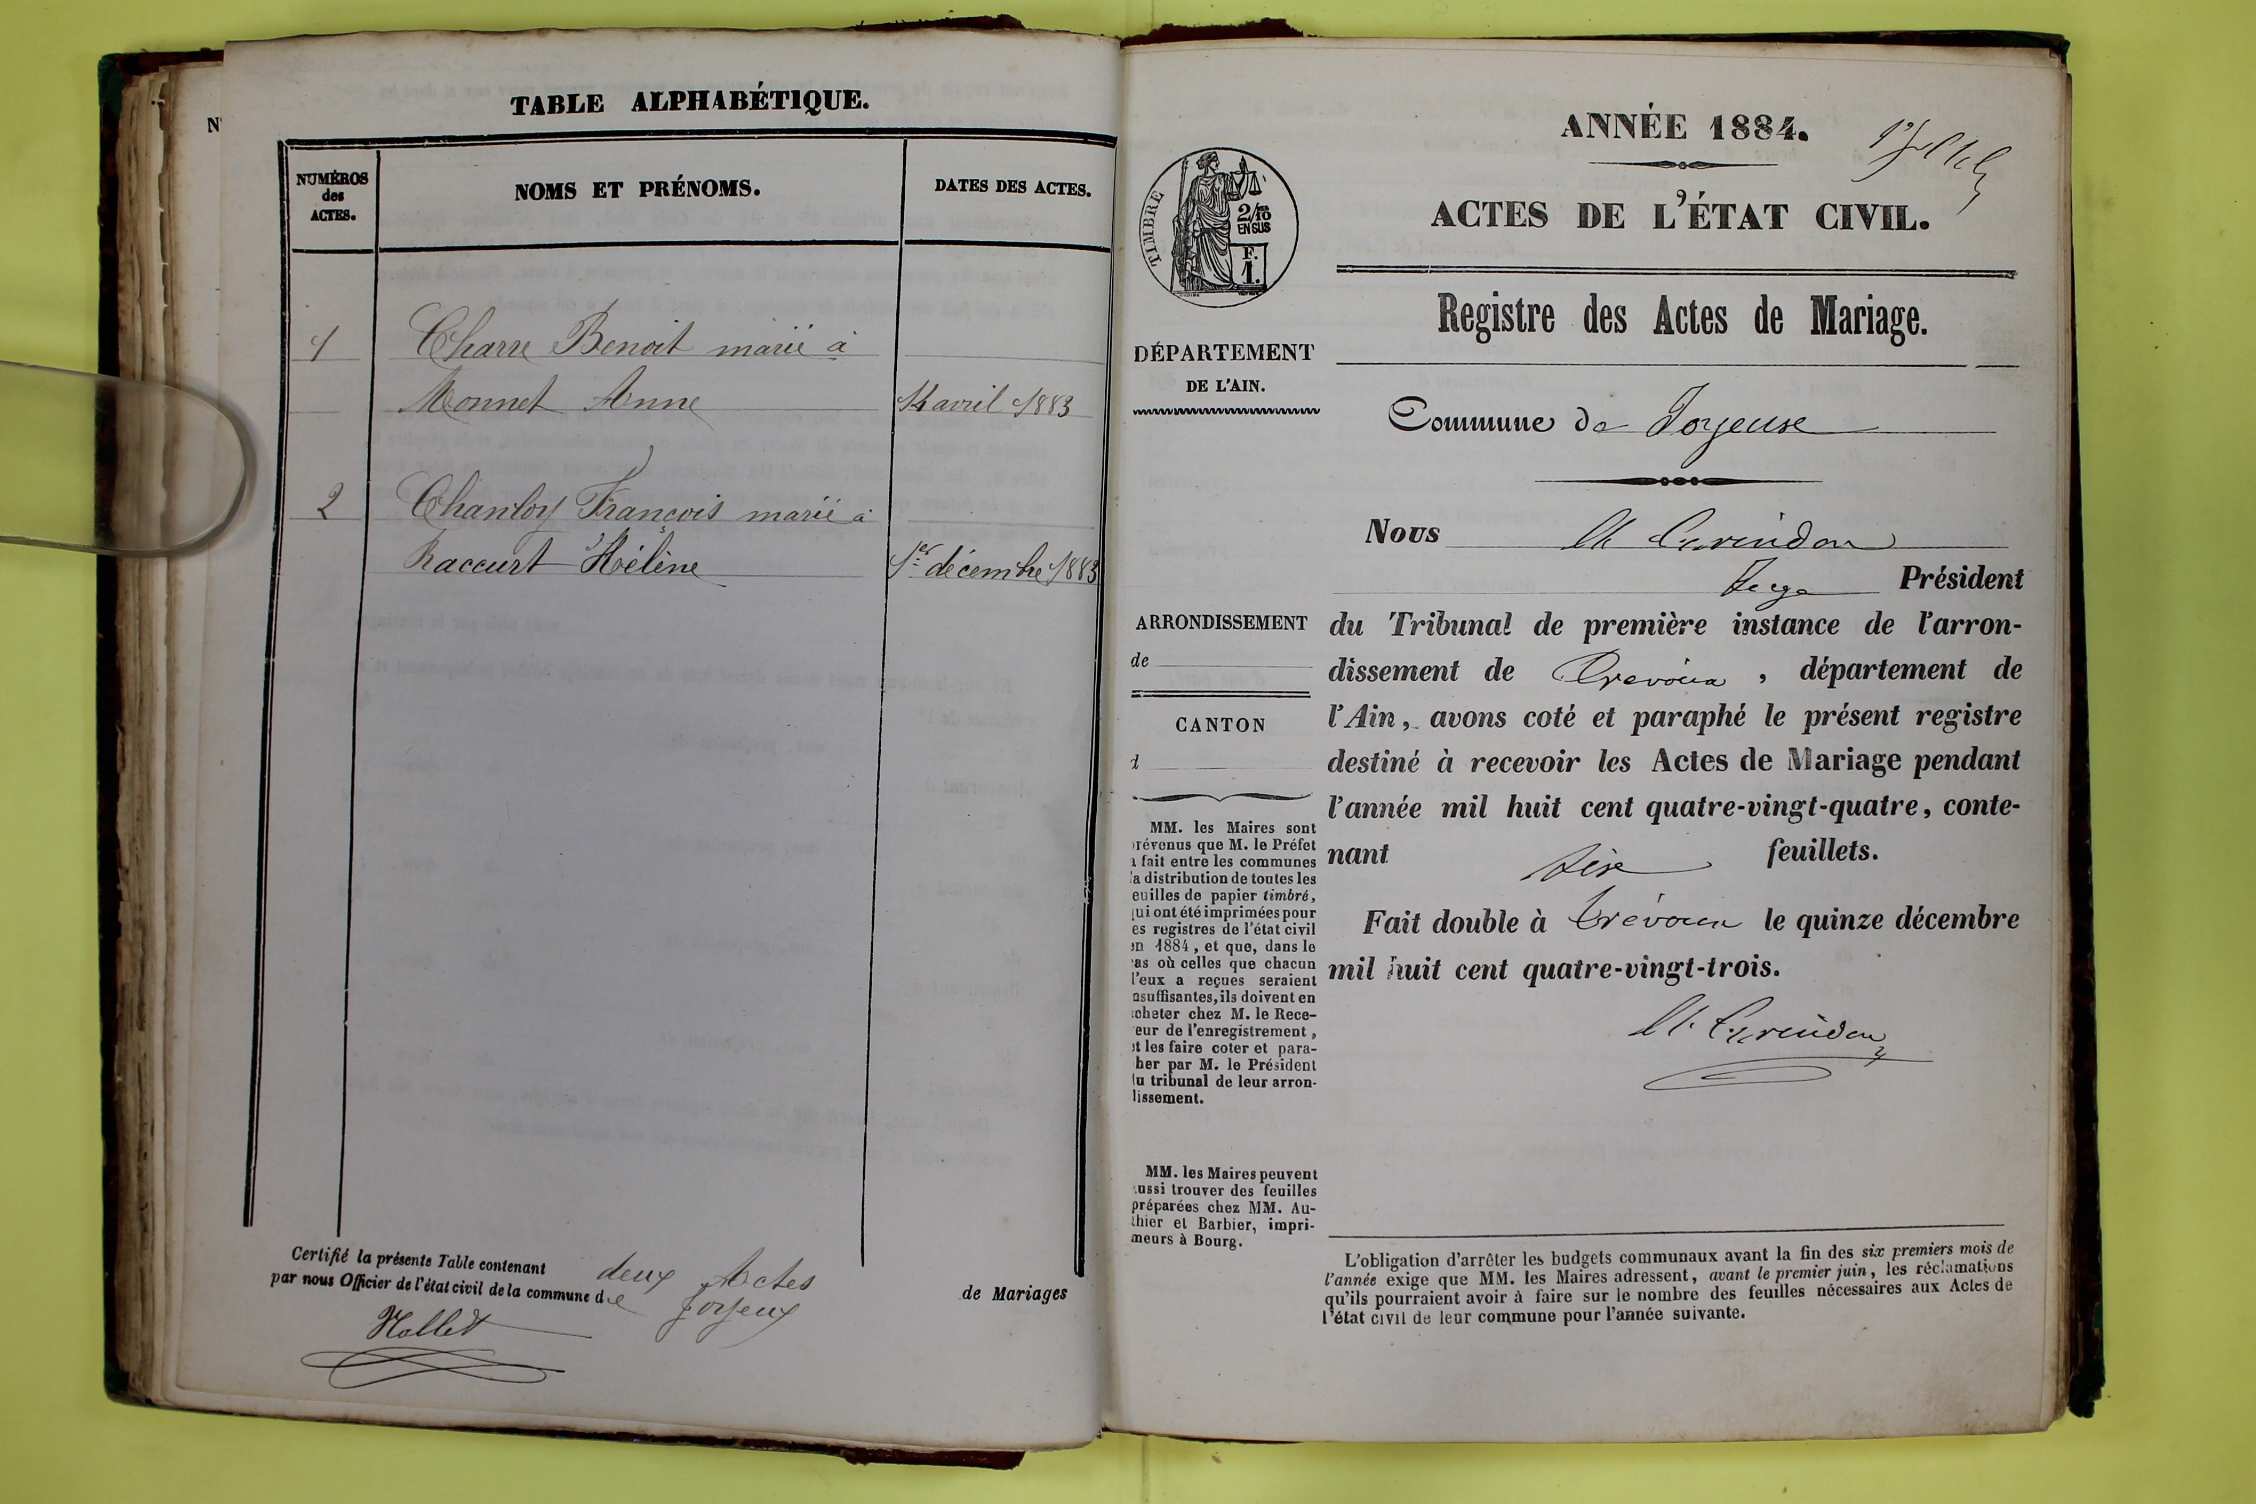 N
TABLE ALPHABÉTIQUE.
NUMÉROS
des
ACTES.
NOMS ET PRÉNOMS.
DATES DES ACTES.
1
Charre Benoit marié à
Monnet Anne
14 avril 1883
2
Chanloy François marié à
Raccurt Hélène
1er décembre 1883
Certifié la présente Table contenant deux Actes de Mariages
par nous Officier de l'état civil de la commune de Joyeux
ANNÉE 1884.
ACTES DE L'ÉTAT CIVIL.
TIMBRE
2/10
EN SUS
F.
1.
Registre des Actes de Mariage.
DÉPARTEMENT
DE L'AIN.
Commune de Joyeuse
Nous
Juge Président
ARRONDISSEMENT
de
CANTON
d
du Tribunal de première instance de l'arron-
dissement de Trévoux, département de
l'Ain, avons coté et paraphé le présent registre
destiné à recevoir les Actes de Mariage pendant
l'année mil huit cent quatre-vingt-quatre, conte-
nant feuillets.
Fait double à Trévoux le quinze décembre
mil huit cent quatre-vingt-trois.
MM. les Maires sont
révenus que M. le Préfet
a fait entre les communes
la distribution de toutes les
euilles de papier timbré,
qui ont été imprimées pour
es registres de l'état civil
en 1884, et que, dans le
cas où celles que chacun
d'eux a reçues seraient
nsuffisantes, ils doivent en
cheter chez M. le Rece-
eur de l'enregistrement,
et les faire coter et para-
her par M. le Président
du tribunal de leur arron-
dissement.
MM. les Maires peuvent
aussi trouver des feuilles
préparées chez MM. Au-
thier et Barbier, impri-
meurs à Bourg.
L'obligation d'arrêter les budgets communaux avant la fin des six premiers mois de
l'année exige que MM. les Maires adressent, avant le premier juin, les réclamations
qu'ils pourraient avoir à faire sur le nombre des feuilles nécessaires aux Actes de
l'état civil de leur commune pour l'année suivante.